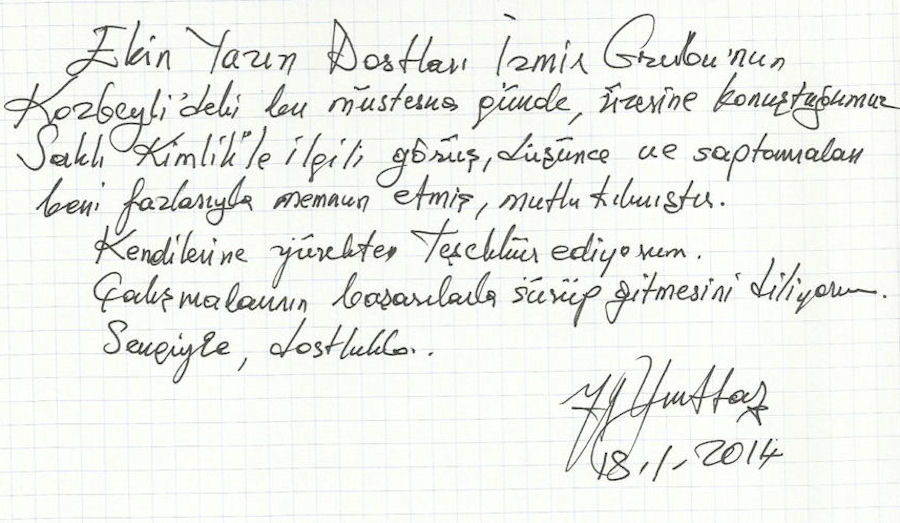 Ekin Yazın Dostları İzmir Grubu'nun
Kozbeyli'deki bu müstesna günde, üzerine konuştuğumuz
Saklı Kimlik'le ilgili görüş, düşünce ve saptamaları
beni fazlasıyla memnun etmiş, mutlu kılmıştır.
Kendilerine yürekten teşekkür ediyorum.
Çalışmalarının başarılarla sürüp gitmesini diliyorum.
Sevgiyle, dostlukla..
18.1.2014